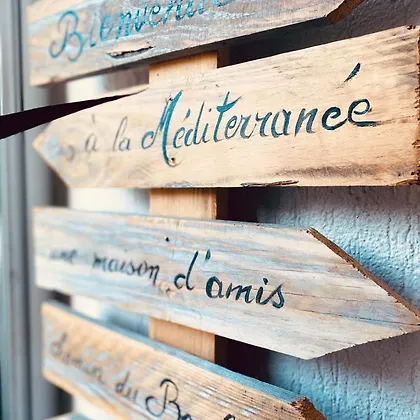 Bienvenue
à la Méditerranée
une maison d'amis
du